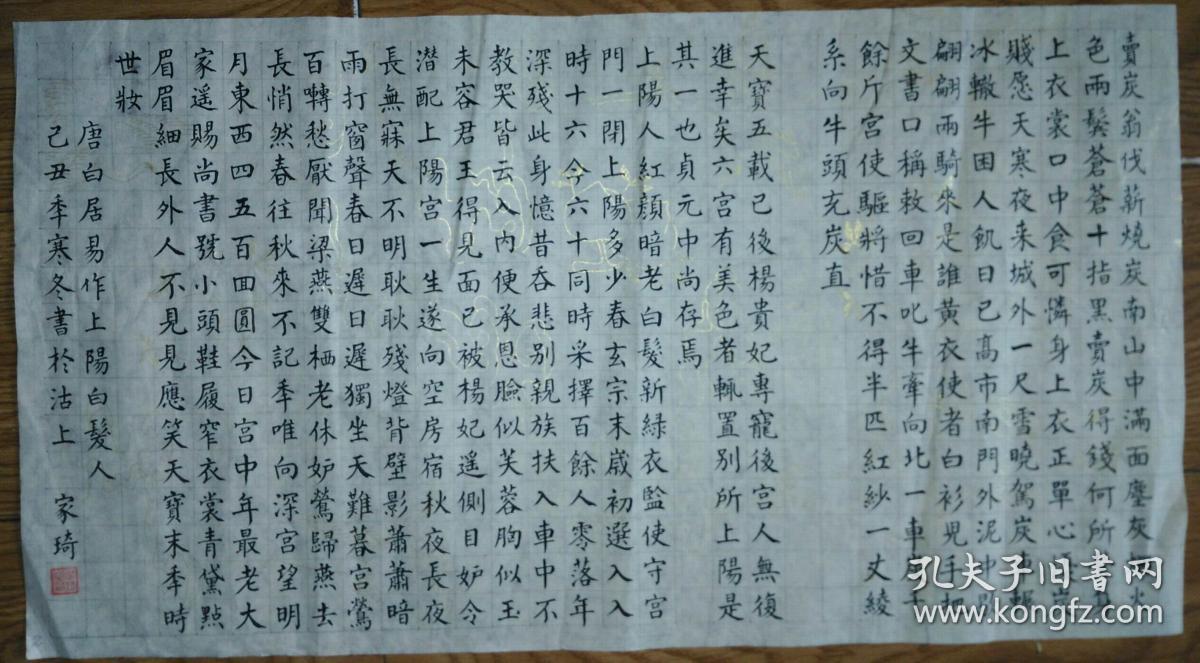 賣炭翁伐薪燒炭南山中滿面塵灰火
色兩鬢蒼蒼十指黑賣炭得錢何所
上衣裳口中食可憐身上衣正單心
賤愿天寒夜来城外一尺雪曉駕炭
冰轍牛困人飢日已高市南門外泥中
翩翩兩騎來是誰黃衣使者白衫兒手
文書口稱敕回車叱牛牽向北一車千
餘斤宮使驅將惜不得半匹紅紗一丈綾
系向牛頭充炭直
天寶五載已後楊貴妃專寵後宮人無復
進幸矣六宮有美色者輒置別所上陽是
其一也貞元中尚存焉
上陽人紅顏暗老白髮新綠衣監使守宮
門一閉上陽多少春玄宗末歲初選入入
時十六今六十同時采擇百餘人零落年
深殘此身憶昔吞悲別親族扶入車中不
教哭皆云入內便承恩臉似芙蓉胸似玉
未容君王得見面已被楊妃遙側目妒令
潛配上陽宮一生遂向空房宿秋夜長夜
長無寐天不明耿耿殘燈背壁影蕭蕭暗
雨打窗聲春日遲日遲獨坐天難暮宮鶯
百囀愁厭聞梁燕雙栖老休妒鶯歸燕去
長悄然春往秋來不記季唯向深宮望明
月東西四五百回圓今日宮中年最老大
家遙賜尚書號小頭鞋履窄衣裳青黛點
眉眉細長外人不見見應笑天寶末季時
世妝
唐白居易作上陽白髮人
己丑季寒冬書於沽上 家琦
孔夫子旧書网
kongfz.com